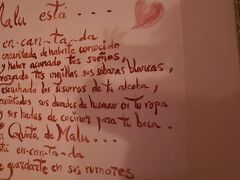 Malu está ...
en-can-ta-da.
encantada de haberte conocido
y haber acunado tus sueños,
tus mejillas sus sábanas blancas,
escuchado los susurros de tu alcoba,
encantados sus duendes de husmear en tu ropa
y sus hadas de cocinar para tu boca.
La Quinta de Malu...
está en-can-ta-da
de guardarte en sus rumores